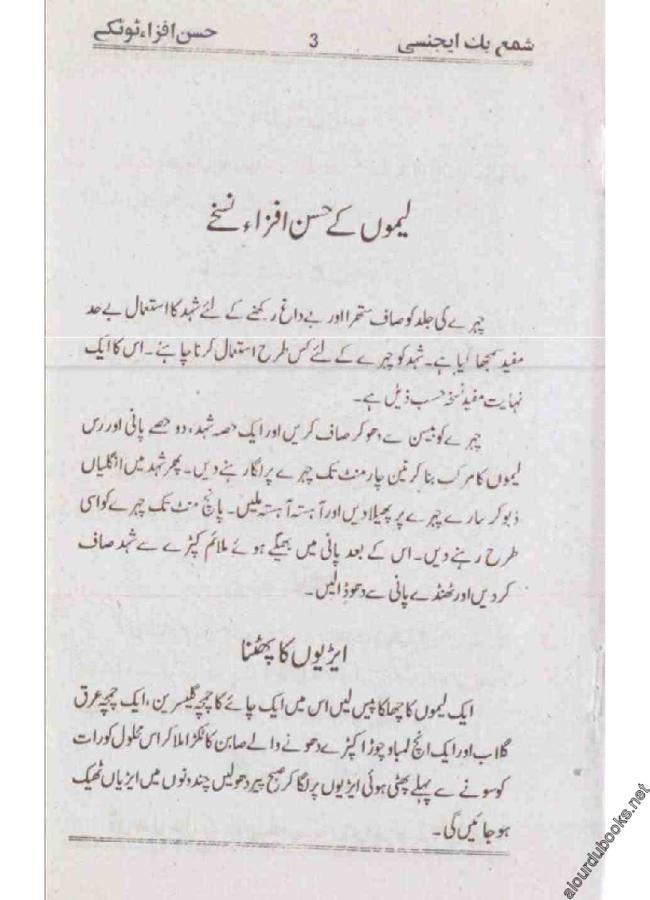 شمع بك ایجنسی 3 حسن افزاء ٹوٹکے
لیموں کے حسن افزاء نسخے
چہرے کی جلد کو صاف ستھرا اور بے داغ رکھنے کے لئے شہد کا استعمال بے حد
مفید سمجھا گیا ہے۔ شہد کو چہرے کے لئے کس طرح استعمال کرنا چاہئے۔ اس کا ایک
نہایت مفید نسخہ حسب ذیل ہے۔
چہرے کو بیسن سے دھو کر صاف کریں اور ایک حصہ شہد، دو حصے پانی اور رس
لیموں کا مرکب بنا کر تین چار منٹ تک چہرے پر لگا رہنے دیں۔ پھر شہد میں انگلیاں
ڈبو کر سارے چہرے پر پھیلا دیں اور آہستہ آہستہ ملیں۔ پانچ منٹ تک چہرے کو اسی
طرح رہنے دیں۔ اس کے بعد پانی میں بھیگے ہوئے ملائم کپڑے سے شہد صاف
کر دیں اور ٹھنڈے پانی سے دھو ڈالیں۔
ایڑیوں کا پھٹنا
ایک لیموں کا چھلکا پیس لیں اس میں ایک چائے کا چمچہ گلیسرین، ایک چمچہ عرق
گلاب اور ایک انچ لمبا و چوڑا کپڑے دھونے والے صابن کا ٹکڑا ملا کر اس محلول کو رات
کو سونے سے پہلے پھٹی ہوئی ایڑیوں پر لگا کر صبح پیر دھولیں چند دنوں میں ایڑیاں ٹھیک
ہو جائیں گی۔
alourdubooks.net